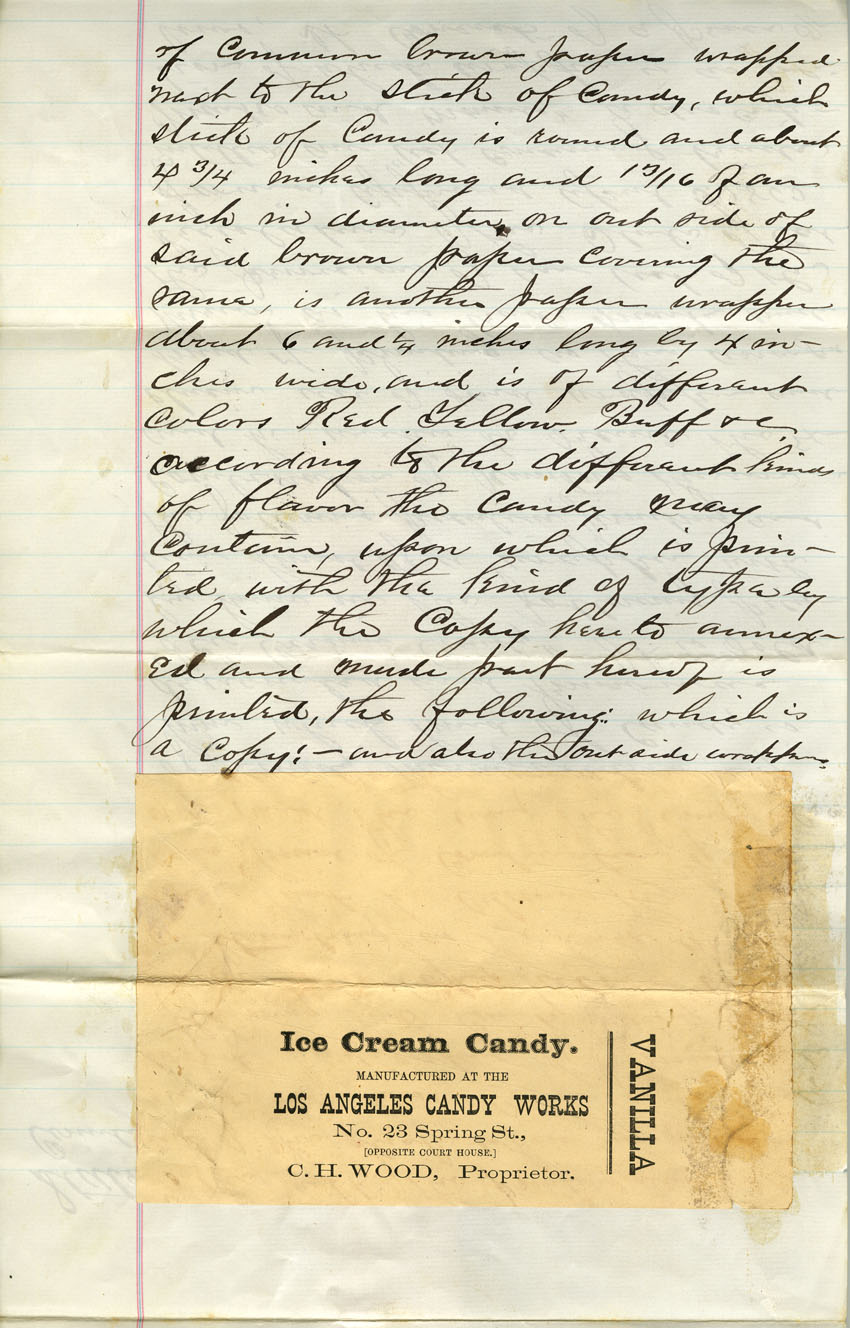 of Common brown paper wrapped
next to the stick of Candy, which
stick of Candy is round and about
4 3/4 inches long and 13/16 of an
inch in diameter, on out side of
said brown paper covering the
same, is another paper wrapper
about 6 and 1/4 inches long by 4 in-
ches wide, and is of different
colors Red, Yellow, Buff &c
according to the different kinds
of flavor the Candy may
Contain, upon which is prin-
ted with the kind of type by
which the Copy here to annex-
ed and made part hereof is
printed, the following: which is
a Copy:- and also the out side wrapper.
Ice Cream Candy.
MANUFACTURED AT THE
LOS ANGELES CANDY WORKS
No. 23 Spring St.,
[OPPOSITE COURT HOUSE.]
C. H. WOOD, Proprietor.
VANILLA